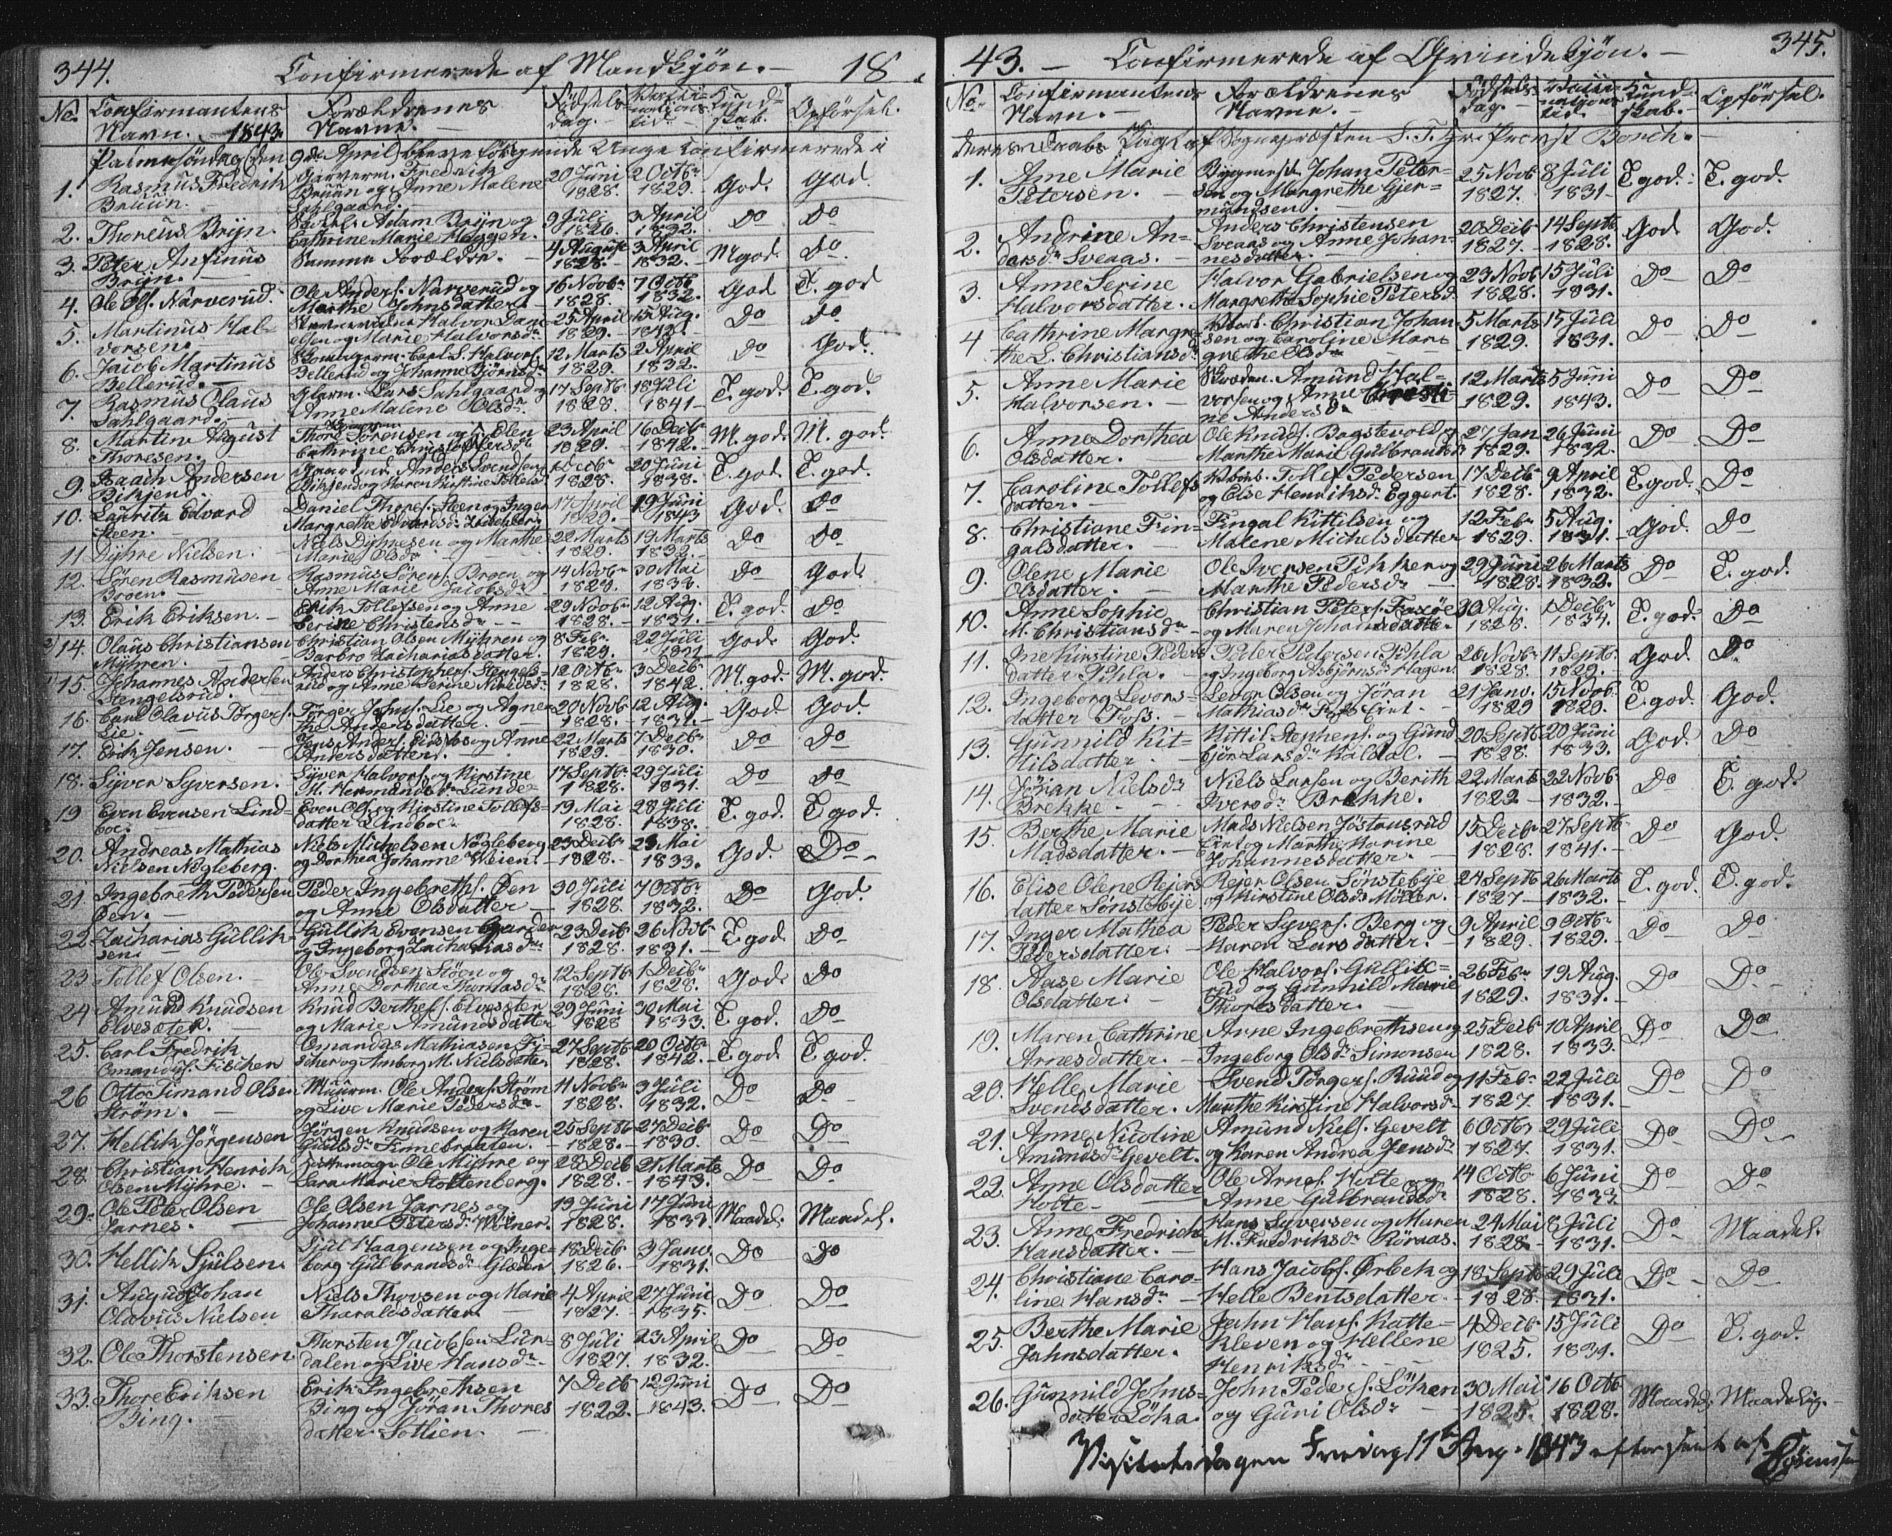 344. Confirmerede af Mandkjøn. — 18
No. Confirmantens Navn. 1843. Forældrenes Navne. Fødsels dag. Vaccinations tid. Kundskab. Opførsel.
Palmesöndag den 9de April bleve følgende Unge confirmerede i
1. Rasmus Fredrik Bruun. Garverm. Fredrik Bruun og Anne Malene Sahlgaard. 20 Juni 1828. 2 Octbr 1829. God. God.
2. Thoreus Bryn. Adam Bryn og Cathrine Marie 9 Juli 1826. 3 April 1832. Do Do
3. Peter Anfinus Bryn. Samme Forældre. 4 August 1828. 3 April 1832. M god. Do.
4. Ole Ols. Narverud. Ole Anders. Narverud og Marthe Johnsdatter. 16 Novbr 1828. 7 Octb 1832. God T. god
5. Martinus Halvorsen. Halvor Danielsen og Marie Halvorsd. 25 April 1829. 15 Aug. Do Do.
6. Jacob Martinus Bellerud. Carl S. Halvors. Bellerud og Johanne Björnsd. 12 Marts 1829. 2 April 1832. Do God.
7. Rasmus Olaus Sahlgaard. Glarm. Lars Sahlgaard og Anne Malene Olsdr. 17 Septb 1828. 18 Juli 1841 T. god. T. god.
8. Martin August Thoresen. Thore Sörensen og Elen Cathrine Christophersdr 23 April 1829. 16 Decb 1842. M. god. M. god.
9. Isach Andersen Biksjend. Anders Svendsen Biksjend og Karen Kirstine 1 Decbr 1828. 20 Juni 1838. T. god. T. god.
10. Lauritz Edvard Steen. Daniel Thores. Steen og Inger Margrethe 17 April 1829. 19 Juni 1843 God. Do
11 Dyhre Nielsen. Niels Dyhresen og Marthe Marie Olsdr 22 Marts 1829. 19 Marts 1832. Do Do
12. Sören Rasmusen Broen. Rasmus Sörens. Broen og Anne Marie Jacobsdr 14 Novbr 1827. 30 Mai 1833. Do God.
13. Erik Eriksen. Erik Tollefsen og Anne Serine Christensdr 29 Novbr 1828. 12 Aug. 1831. T. god. Do
14. Olaus Christiansen Myhren. Christian Olsen Myhren og Barbro Zachariasdatter. 8 Febr 1829. 22 Juli God. God.
15. Johannes Andersen Stengelsrud. Anders Christophers. Stengelsrud og Anne Serine Nielsdr 12 Octbr 1828. 3 Decb 1842. M. god. M. god.
16. Carl Olavus Törgers. Lie. Törger Johns. Lie og Agnethe Andersdatter. 20 Novb 1828. 12 Aug. 1831. God God.
17. Erik Jensen. Jens Anders. og Anne Andersdatter. 22 Marts 1829. 7 Decb 1830. Do Do
18. Syver Syversen. Syver Halvors. og Kirstine M. Hermansdr Lunde. 17 Septbr 1828. 29 Juli 1831. Do Do
19 Even Evensen Lindboe. Even Ols. og Kirstine Tollefsdatter Lindboe. 19 Mai 1828. 28 Juli 1838. T. god. T god.
20. Andreas Mathias Nielsen Nøgleberg. Niels Michelsen Nøgleberg og Dorthea Johanne Meien. 23 Decbr 1828. 23 Mai 1833. God. Do
21. Ingebreth Pedersen Øen. Peder Ingebreths. Øen og Anne Olsdatter 30 Juli 1828. 7 Octbr 1832. Do God.
22. Zacharias Gulliksen. Gullik Evensen og Ingeborg Zachariasdr 23 Decb 1828. 26 Novbr 1831. T. god Do
23. Tollef Olsen. Ole Svendsen Stöen og Anne Dorthea Thomasdr 12 Septb 1828. 1 Decbr 1828. God. Do
24 Amund Knudsen Elvesæter. Knud Berthels. Elvesæter og Marie Amundsdatter 29 Juni 1828 30 Mai 1833. T god. Do
25. Carl Fredrik Omandus. Fischer. Omandus Mathiasen Fischer og Amborg M. Nielsdatter. 27 Septb 1828. 20 Octbr 1842. T. god T. god.
26 Otto Timand Olsen Ström. Muurm. Ole Anders. Ström og Live Marie Pedersdr 11 Novbr 1828. 3 Juli 1832. Do Do
27. Hellik Jörgensen Jörgen Knudsen og Karen Finnebraaten. 25 Septb 1828. 27 Decb 1830. Do Do
28. Christian Henrik Olsen Myhre. Ole Myhre og Sara Marie Stoltenberg. 28 Decb 1828. 21 Marts 1843. Do Do
29. Ole Peter Olsen Jarnes. Ole Olsen Jarnes og Johanne Petersdr 19 Juni 1828. 14 Juni 1832. Maadel. Maadel.
30. Hellik Sjulsen. Sjul Haagensen og Ingeborg Gulbrandsdr 18 Decb 1826. 3 Janr 1831. Do Do
31. August Johan Olavus Nielsen Niels Thovsen og Marie Tharaldsdatter 4 April 1827. 27 Juni 1835. Do Do
32. Ole Thorstensen. Thorsten Jacobsen Lurdalen og Live Hansdr 8 Juli 1827. 23 April 1832. Do Do
33. Thore Eriksen Bing. Erik Ingebrethsen Bing og Jöran Thoresdatter Sollien. 7 Decb 1822. 12 Juni 1843. Do Do
43. — Confirmerede af Qvindekjøn. — 345.
No. Confirmantens Navn. Forældrenes Navne. Fødsels dag. Vaccinations tid. Kundskab. Opførsel.
deres Daabs Pagt af Sognepræsten S. T. Hr. Provst Borch.
1. Anne Marie Petersen. Johan Petersen og Margrethe Gjermundsen. 25 Novb 1827. 8 Juli 1831 T. god. T. god.
2. Andrine Andersdr Sveaas. Anders Christensen Sveaas og Anne Johannesdatter. 20 Decb 1827. 14 Septb 1828. God God.
3. Anne Serine Halvorsdatter. Halvor Gabrielsen og Margrethe Sophie Petersd. 23 Novb 1828. 15 Juli 1831. Do Do
4 Cathrine Margrethe L. Christiansdr Christian Johansen og Caroline Margrethe Olsdr 5 Marts 1829. 15 Juli 1831. Do Do
5. Anne Marie Halvorsen. Amund Halvorsen og Anne Andersdr 12 Marts 1829. 5 Juni 1843. Do Do
6. Anne Dorthea Olsdatter. Ole Knuds. Bagstevold og Marthe Marie Gulbrandsd 27 Jan 1829. 26 Juni 1832. Do Do
7. Caroline Tollefsdatter. Tollef Pedersen og Else Henriksdr Eggert. 17 Decb 1828. 9 April 1832. T god. Do
8. Christiane Fingalsdatter. Fingal Kittilsen og Malene Michelsdatter 12 Febr 1829. 5 Aug. 1831. God. Do
9. Olene Marie Olsdatter. Ole Iversen og Marthe Pedersdr 29 Juni 1828. 26 Marts 1832. Do T. god.
10. Anne Sophie M. Christiansdr Christian Peters. Faxöe og Maren Johansdatter. 30 Aug. 1828. 1 Decbr 1834. T. god. Do
11. Ine Kirstine Pedersdatter Pihla. Peder Pedersen Pihla og Ingeborg Asbjörnsdr Hagen. 26 Novbr 1828. 11 Septb. 1829. God Do
12. Ingeborg Levorsdatter Foss. Levor Olsen og Jöran Mathiasdr Foss Eiet. 21 Janr. 1829 15 Novb. 1829. T. god God.
13. Gunnild Kittilsdatter. Kittil Stephens. og Gundbjör Larsdr Kaldal. 20 Septb 1828. 20 Juni 1833. God. Do
14. Jöran Nielsdr Brekke. Niels Larsen og Berith Iversdr Brekke. 22 Marts 1829 22 Novb 1832. Do T. god.
15. Berthe Marie Madsdatter. Mads Nielsen Jöstansrud Eiet og Marthe Karine Johannesdatter. 15 Decbr 1828. 27 Septb 1841. Do God.
16. Elise Olene Reiersdatter Sönstebye Reier Olsen Sönstebye og Kirstine Olsdr Möller. 24 Septb 1827 26 Marts 1832. T. god. T. god.
17. Inger Mathea Pedersdatter. Peder Syvers. Berg og Karen Larsdatter. 9 April 1829. 9 Octbr 1829. Do Do
18. Aase Marie Olsdatter. Ole Halvors. Gullikrud og Gunnild Marie Thoresdatter. 26 Febr 1829. 19 Aug. 1831. Do Do
19. Maren Cathrine Arnesdatter. Arne Ingebrethsen og Ingeborg Olsdr Simonsen 25 Decb 1828. 10 April 1833. Do Do
20. Helle Marie Svendsdatter. Svend Törgers. Ruud og Marthe Kirstine Halvorsdr 11 Febr 1827. 22 Juli 1831. Do Do
21. Anne Nicoline Amundsdr Gevelt. Amund Niels. Gevelt og Karen Andrea Jensdr 6 Octbr 1827. 29 Juli 1831. Do Do
22. Anne Olsdatter Holte. Ole Arnes. Holte og Anne Gulbrandsdr 14 Octb 1828. 6 Juni 1833. Do Do
23. Anne Fredrich Hansdatter. Hans Syversen og Maren M. Fredriksdr 24 Mai 1828. 8 Juli 1831. Do Maadel.
24. Christiane Caroline Hansdr Hans Jacobs. Ørbek og Helle Bentsdatter. 18 Septb 1828. 29 Juli 1831. Do Do
25. Berthe Marie Jahnsdatter. Jahn Hans. Kattekleven og Hellene Henriksdr 4 Decb 1825. 15 Juli 1831. Do T. god.
26. Gunnild Johnsdatter Löka. John Peders. Löken og Guri Olsdr 30 Mai 1825. 16 Octb 1828. Maadel. Maadelig.
Visitatsdagen Fredag 11te Aug. 1843 efterseet af Sörenssen